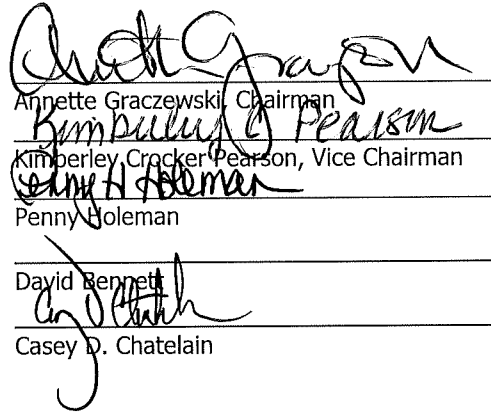 Annette Graczewski, Chairman
Kimberley C Pearson
Kimberley Crocker Pearson, Vice Chairman
Penny H Holeman
Penny Holeman
David Bennett
Casey D. Chatelain